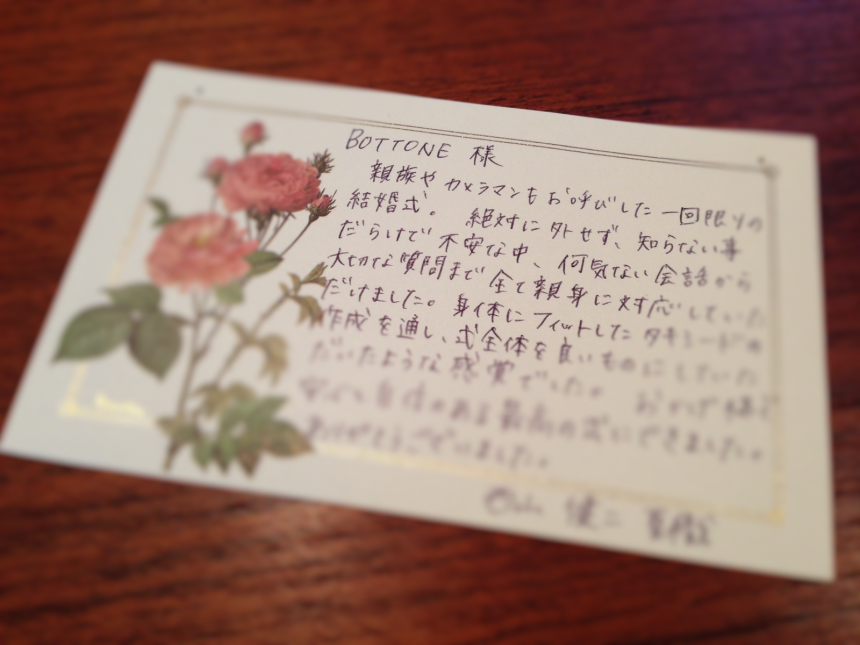 BOTTONE 様
親族や カメラマンも お呼びした 一回限りの
結婚式。 絶対に 外せず、 知らない事
だらけで 不安な中、 何気ない 会話から
大切な 質問まで 全て 親身に 対応していた
だけました。 身体に フィットした タキシードの
作成を通し、式全体を良いものにしていた
だいたような 感覚でした。 おかげ様で
安心と自信のある最高の式にできました。
ありがとうございました。
健二